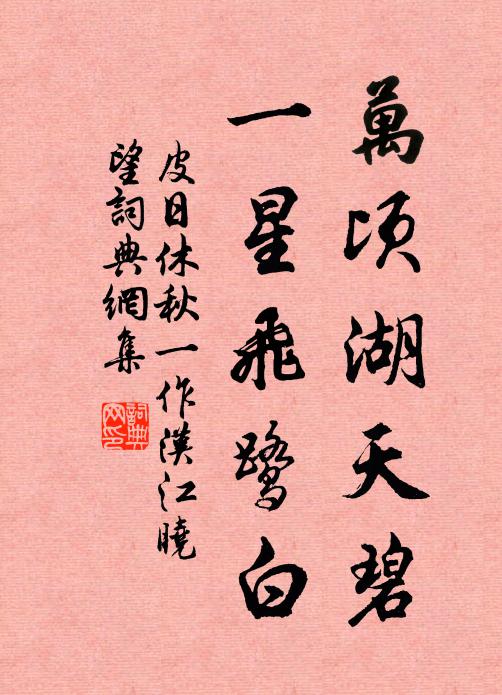 萬頃湖天碧
一星飛鷺白
皮日休秋一作漢江曉
望詞典網集
詞典
网印